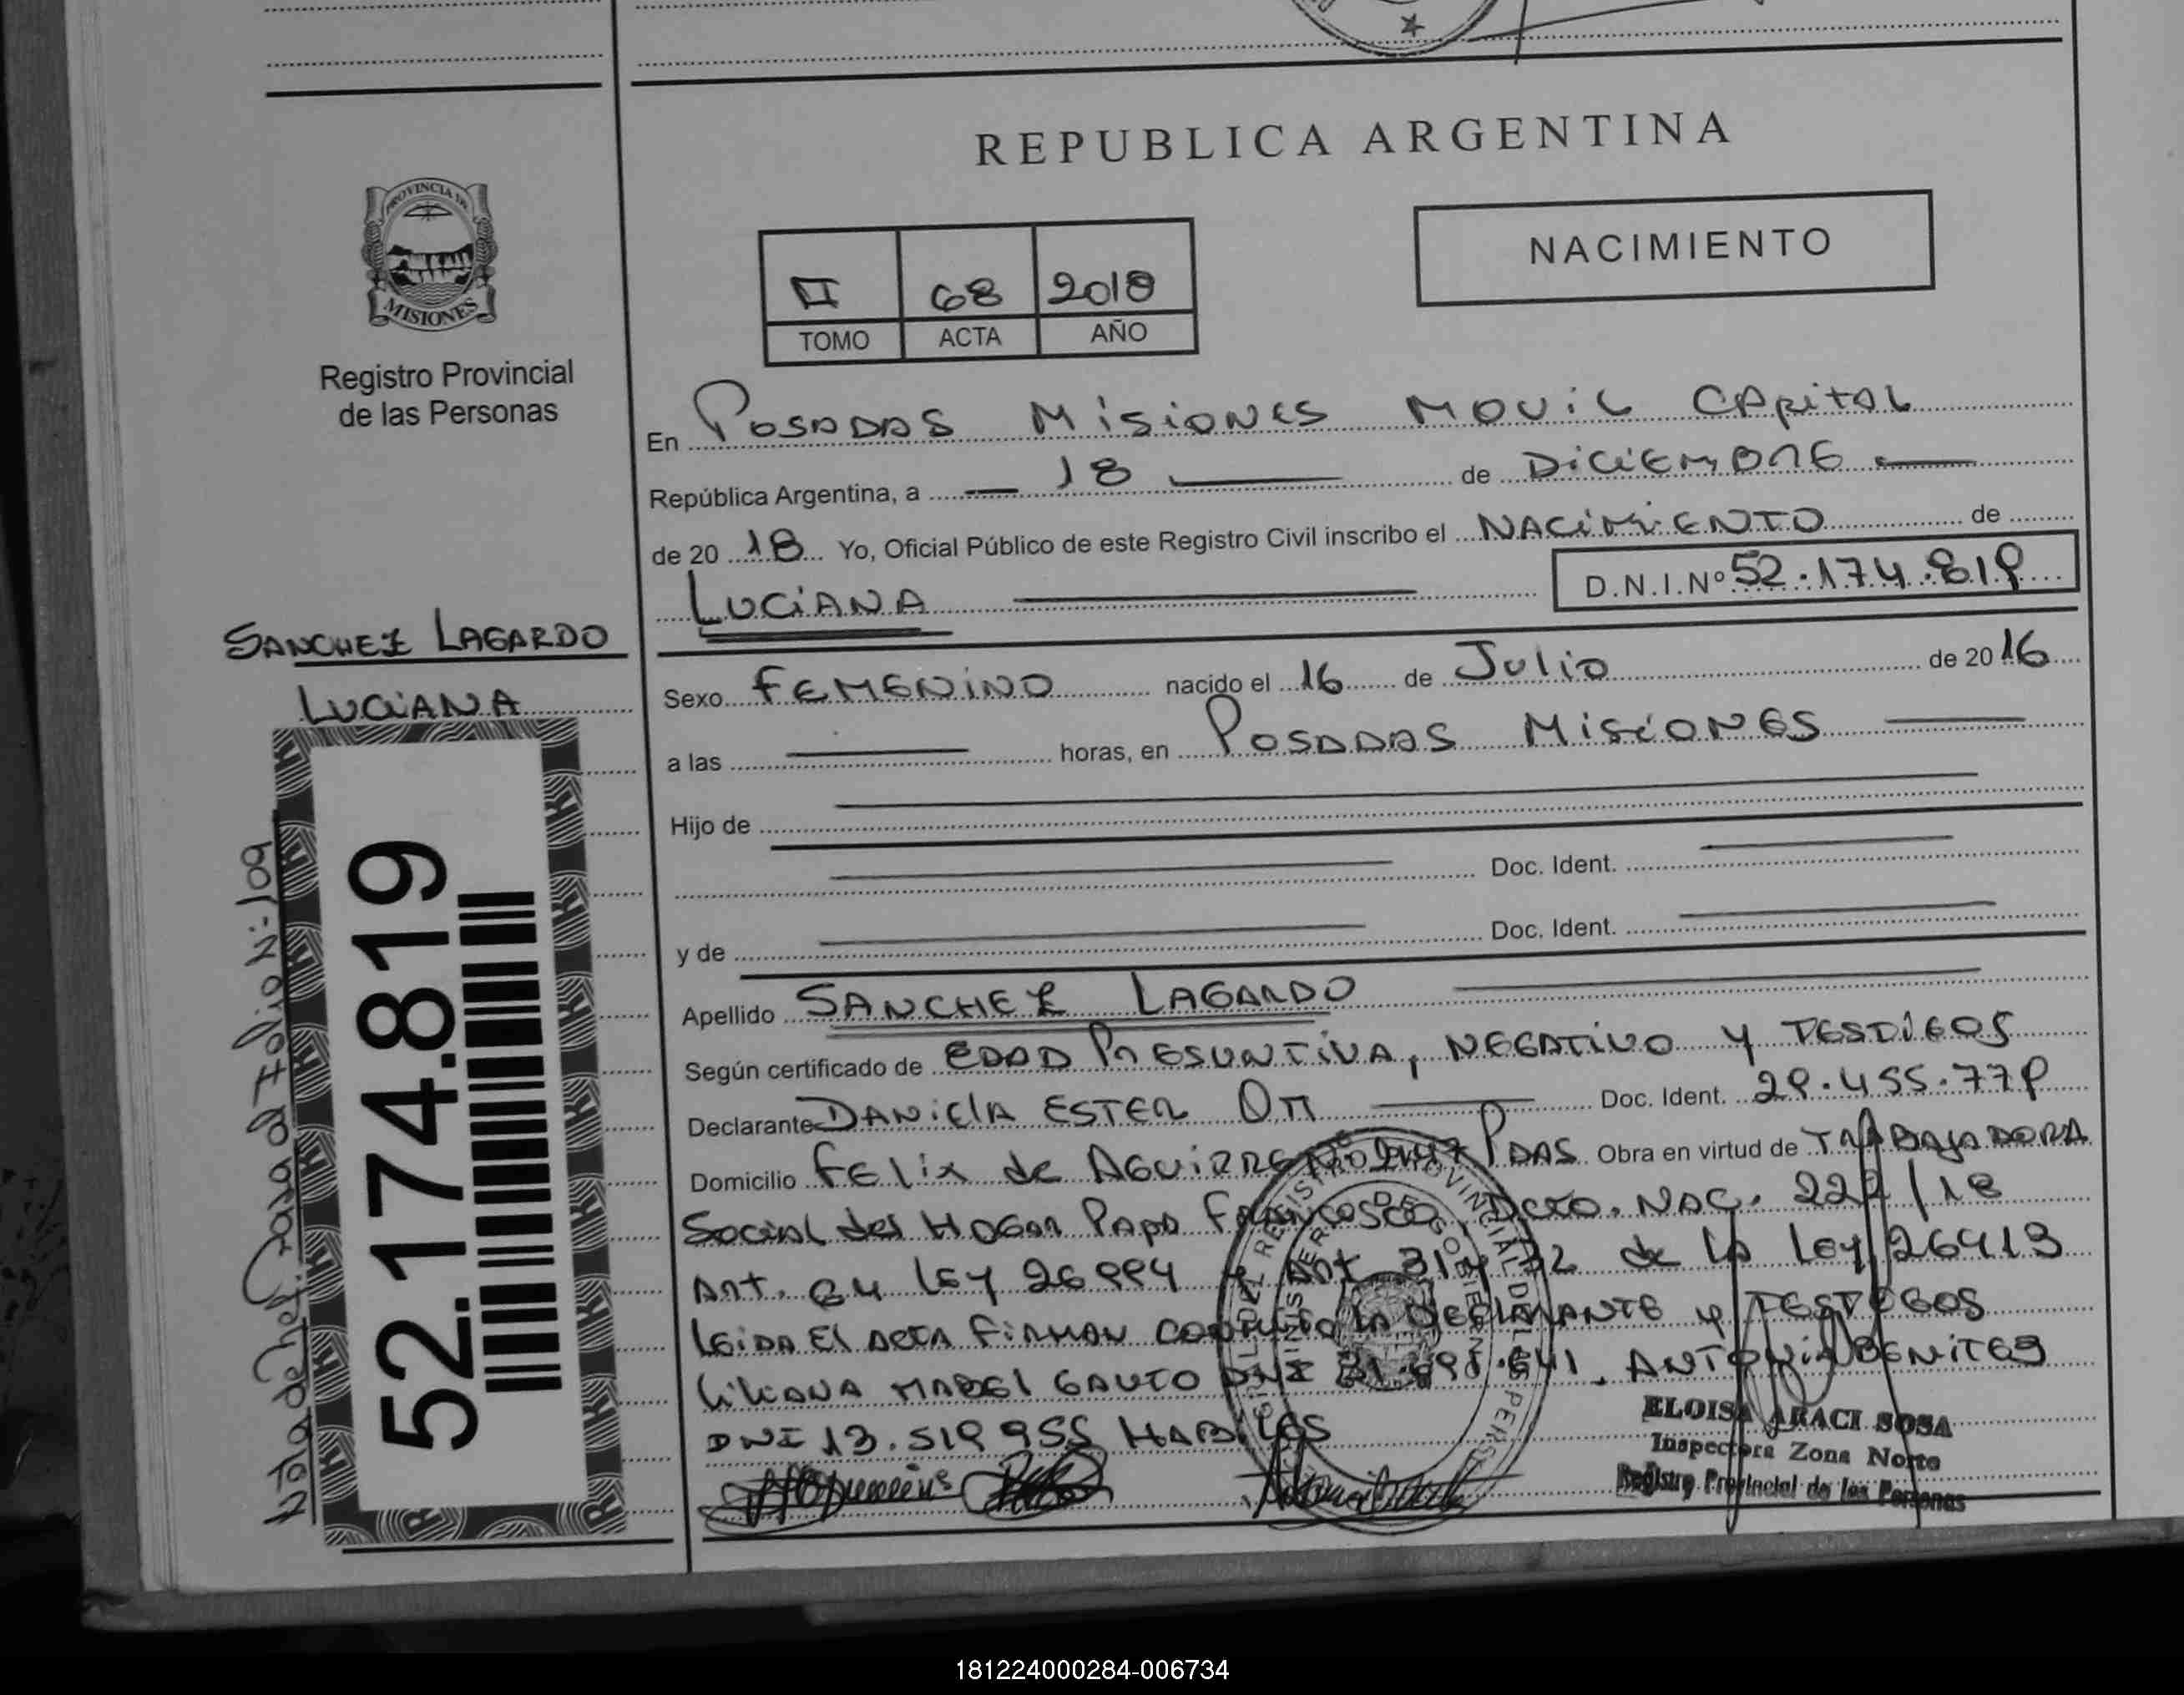 REPUBLICA ARGENTINA
PROVINCIA DE
MISIONES
Registro Provincial
de las Personas
II 68 2018
TOMO ACTA AÑO
NACIMIENTO
En Posadas Misiones Movil Capital
República Argentina, a 18 de Diciembre
de 20 18 Yo, Oficial Público de este Registro Civil inscribo el NACIMIENTO de
LUCIANA
D.N.I.Nº 52.174.819
SANCHEZ LAGARDO
LUCIANA
52.174.819
Nota de ref. pasa al Folio Nº 109
Sexo FEMENINO nacido el 16 de Julio de 20 16
a las horas, en Posadas Misiones
Hijo de
Doc. Ident.
y de Doc. Ident.
Apellido SANCHEZ LAGARDO
Según certificado de EDAD PRESUNTIVA, NEGATIVO Y TESTIGOS
Declarante DANIELA ESTER OTT Doc. Ident. 29.455.779
Domicilio Felix de Aguirre Nº 2447 PDAS Obra en virtud de TRABAJADORA
Social del HOGAR Papa Francisco, Dcto. NAC. 222/18
Art. 84 Ley 26994 y Art 31 y 32 de la Ley 26413
Leida El Acta Firman conmigo la DECLARANTE y TESTIGOS
Liliana MABEL GAUTO DNI 641. ANTONIA BENITES
DNI 13.519.955 HABILES
ELOISA ARACI SOSA
Inspectora Zona Norte
Registro Provincial de las Personas
181224000284-006734